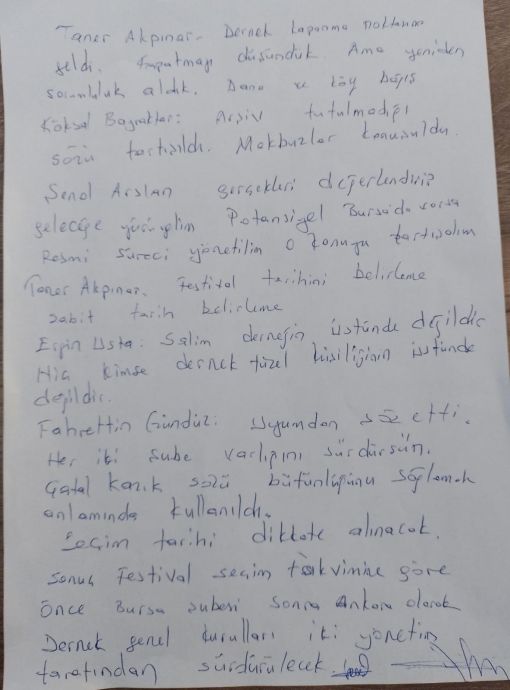 Taner Akpınar. Dernek kapanma noktasına
geldi. Kapatmayı düşündük. Ama yeniden
sorumluluk aldık. Dana ve köy bağış
Köksal Bayraktar: Arşiv tutulmadığı
sözü tartışıldı. Makbuzlar konuşuldu.
Şenol Arslan gerçekleri değerlendirip
geleceğe yürüyelim Potansiyel Bursa'da varsa
Resmi süreci yönetilim o konuyu tartışalım
Taner Akpınar. Festival tarihini belirleme
sabit tarih belirleme
Ergin Usta: Salim derneğin üstünde değildir
Hiç kimse dernek tüzel kişiliğinin üstünde
değildir.
Fahrettin Gündüz: Uyumdan söz etti.
Her iki şube varlığını sürdürsün.
Çatal Kazık sözü bütünlüğünü sağlamak
anlamında kullanıldı.
Seçim tarihi dikkate alınacak.
Sonuç Festival seçim takvimine göre
önce Bursa şubesi sonra Ankara olarak
Dernek genel kurulları iki yönetim
tarafından sürdürülecek.